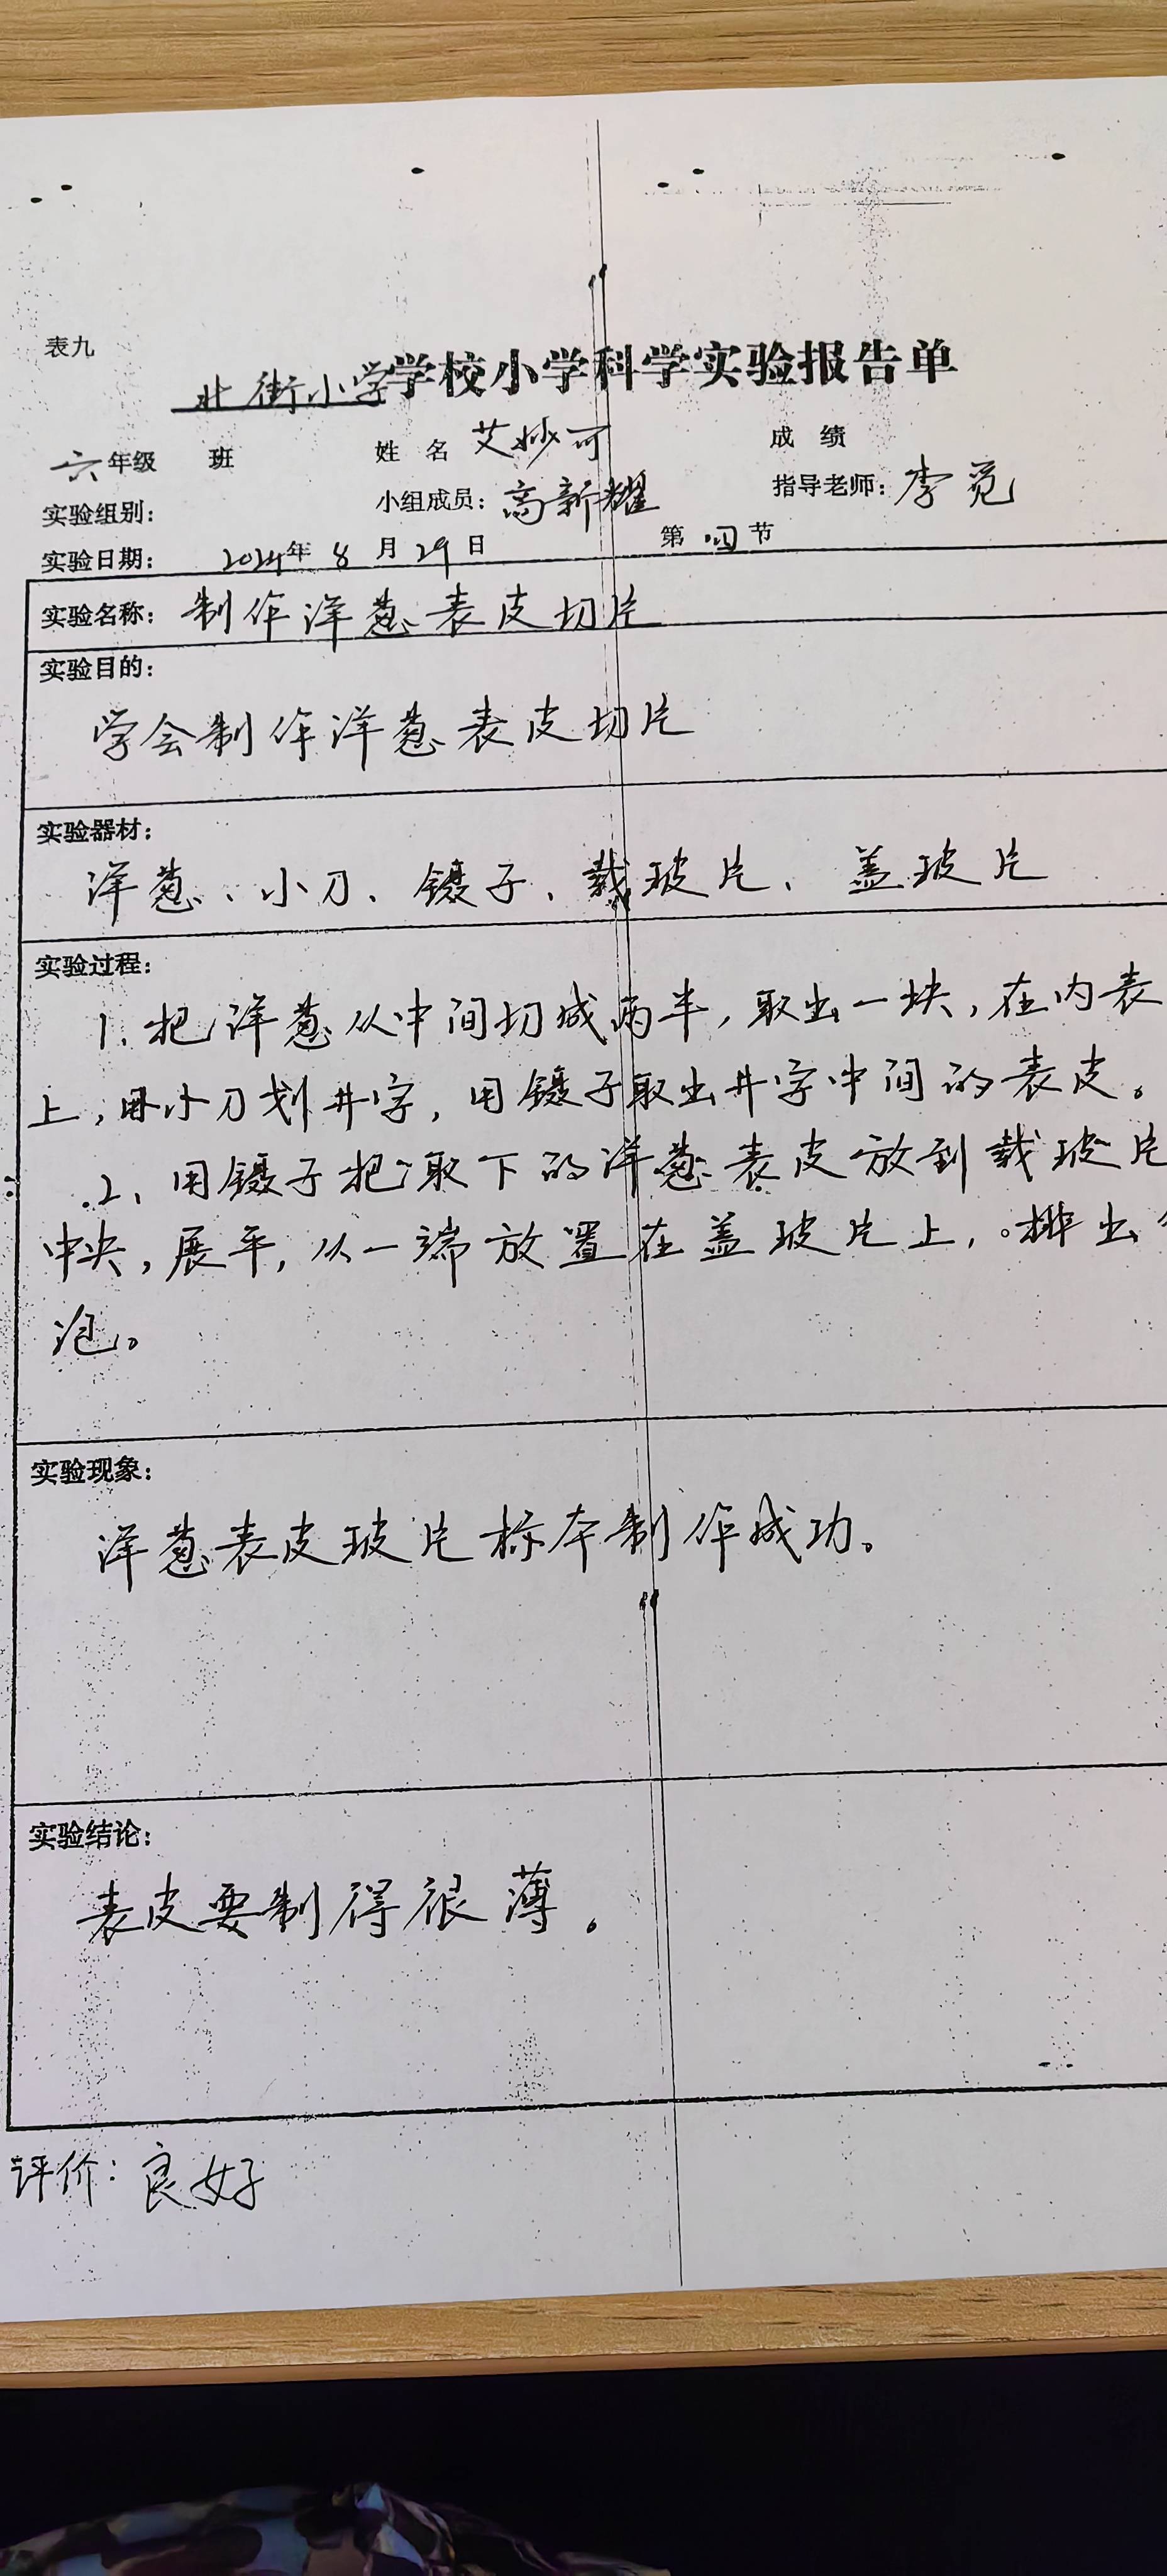 表九
北街小学学校小学科学实验报告单
六年级 班 姓 名 艾妙可 成 绩
实验组别: 小组成员: 高新耀 指导老师: 李觅
实验日期: 2024年 8 月 29 日 第 四 节
实验名称: 制作洋葱表皮切片
实验目的:
学会制作洋葱表皮切片
实验器材:
洋葱、小刀、镊子、载玻片、盖玻片
实验过程:
1. 把洋葱从中间切成两半,取出一块,在内表
上,用小刀划井字,用镊子取出井字中间的表皮。
2、用镊子把取下的洋葱表皮放到载玻片
中央,展平,从一端放置在盖玻片上,排出
泡。
实验现象:
洋葱表皮玻片标本制作成功。
实验结论:
表皮要制得很薄。
评价: 良好